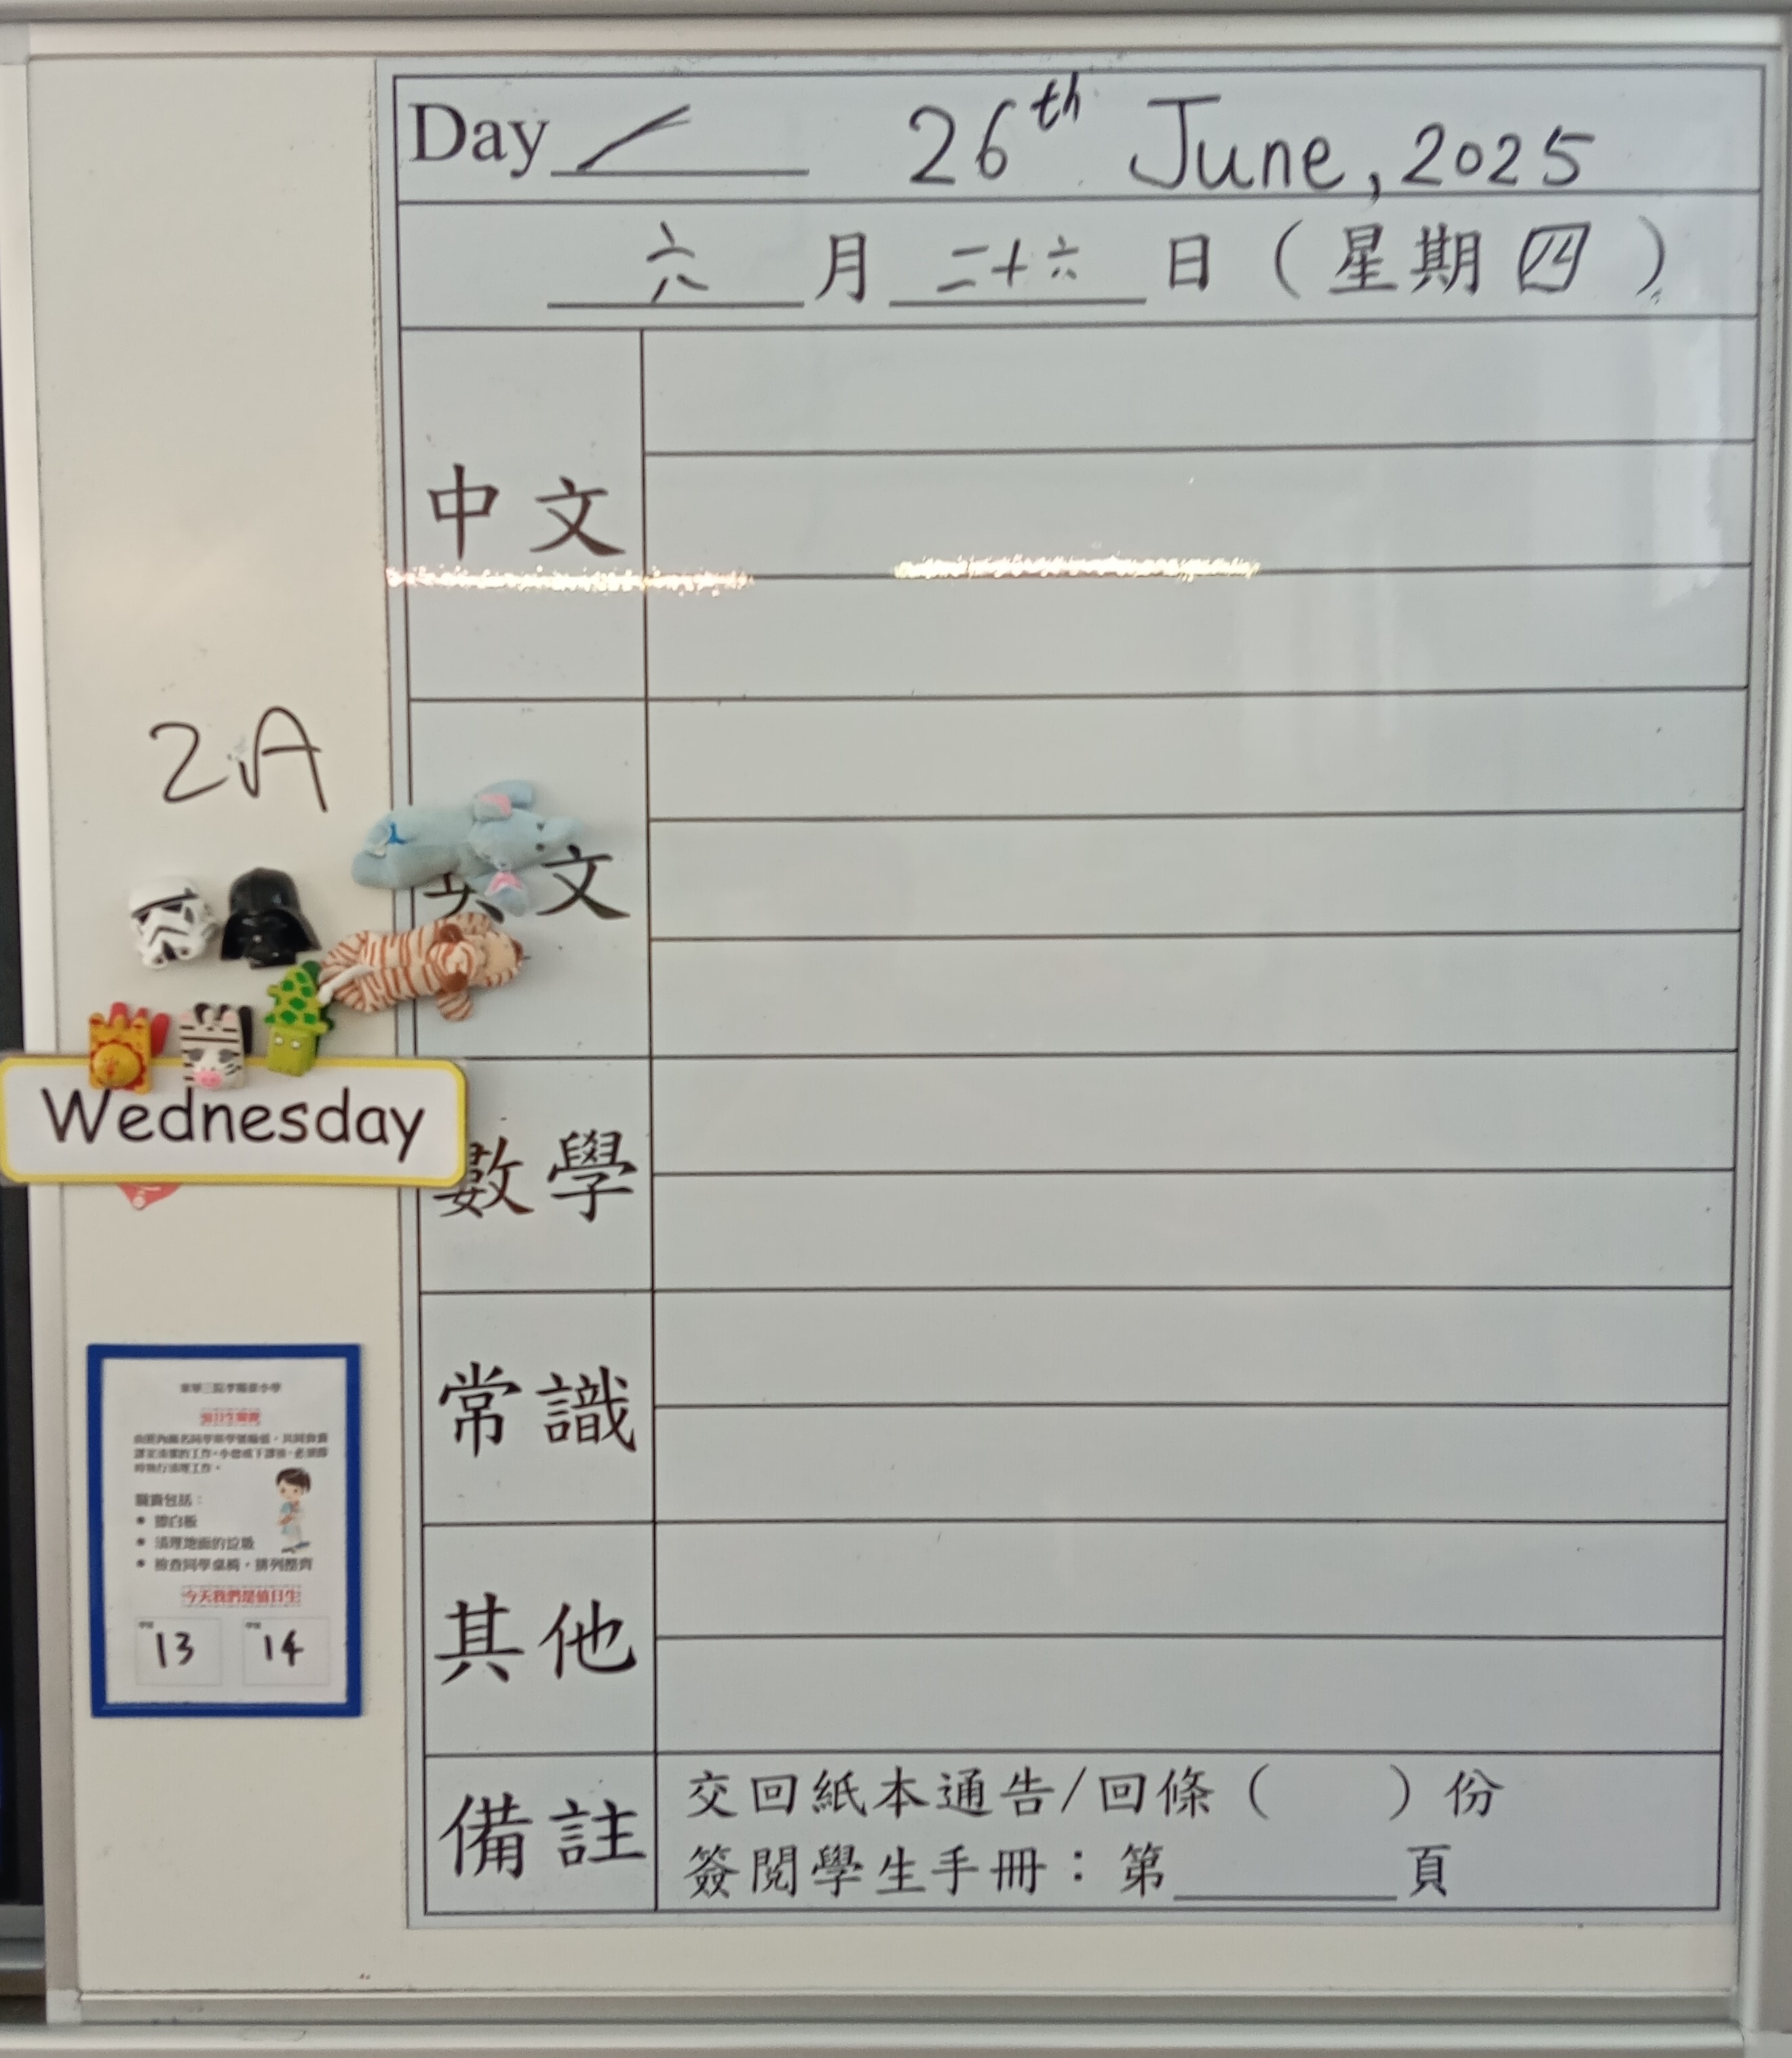 Day 26th June, 2025
六 月 二十六 日 ( 星期 四 )
中文
2A
文
Wednesday
數學
常識
職責包括：
擦白板
清理地面的垃圾
檢查同學桌椅，排列整齊
今天我們是值日生
13 14
其他
備註
交回紙本通告/回條 ( ) 份
簽閱學生手冊：第 頁